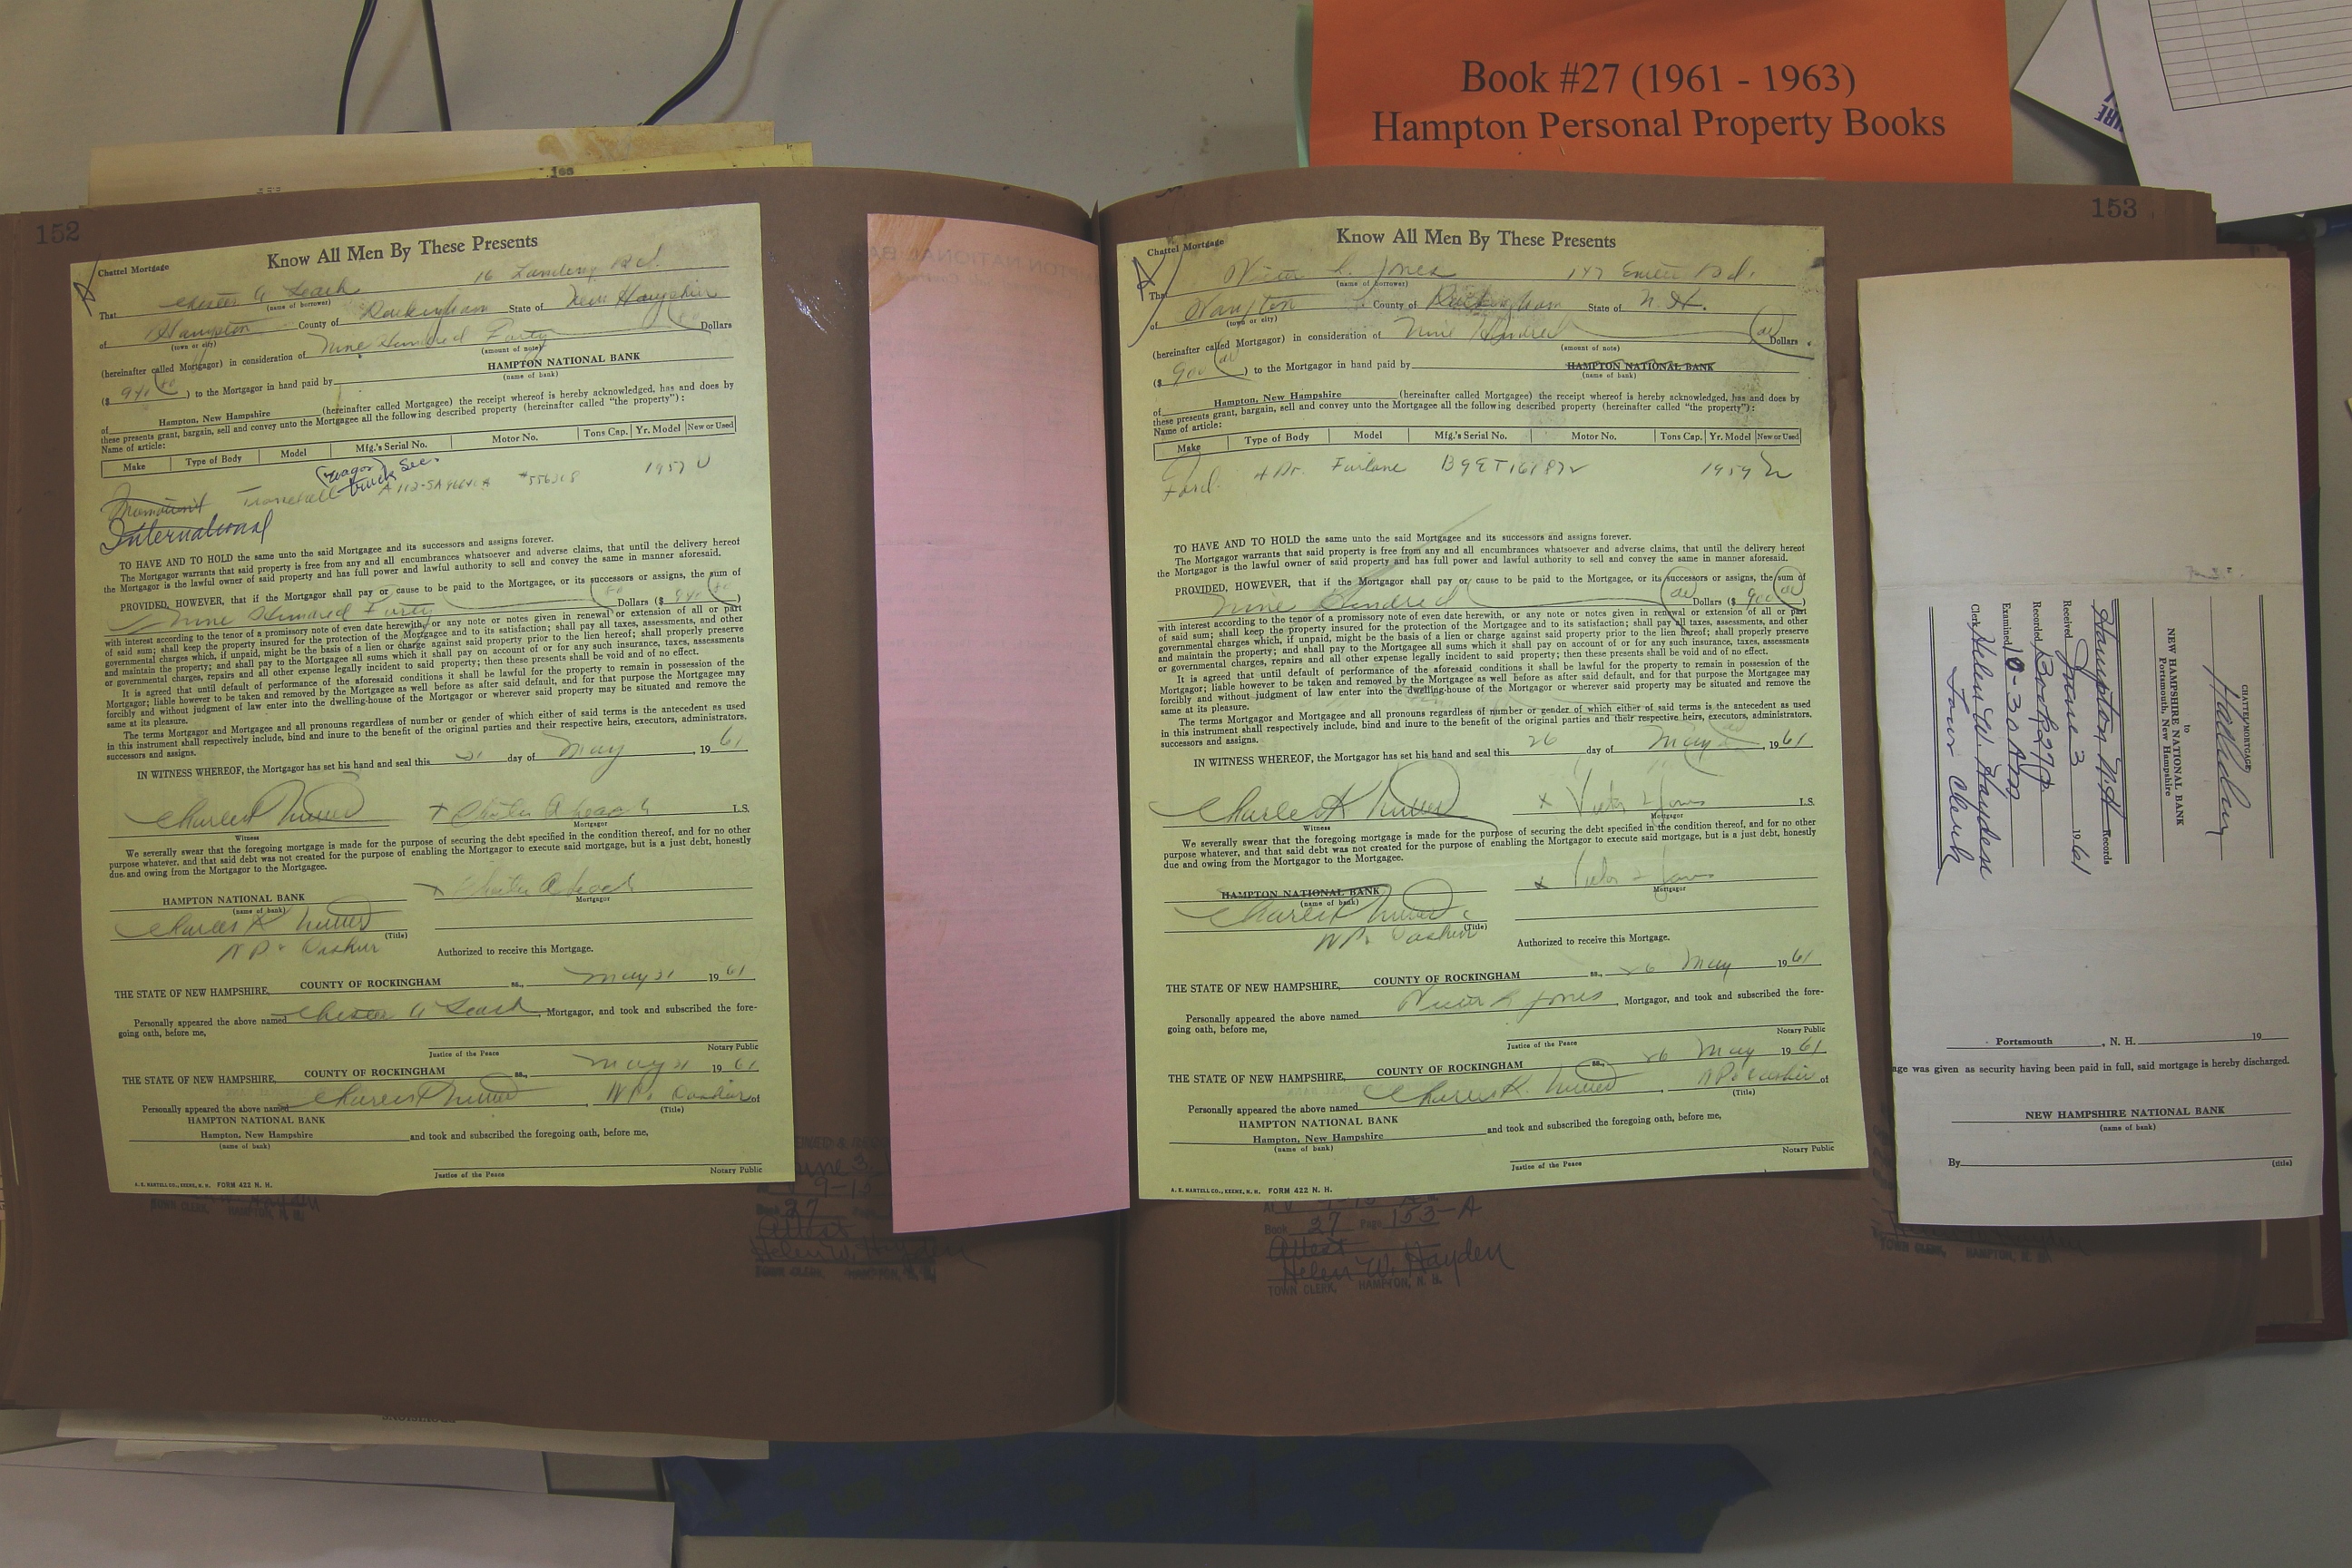 Book #27 (1961 - 1963)
Hampton Personal Property Books
152
Chattel Mortgage
Know All Men By These Presents
That Chester A Leach 16 Landing Rd.
(name of borrower)
of Hampton County of Rockingham State of New Hampshire
(town or city)
(hereinafter called Mortgagor) in consideration of Nine Hundred Forty Dollars
(amount of note)
($ 940 ) to the Mortgagor in hand paid by HAMPTON NATIONAL BANK
(name of bank)
of Hampton, New Hampshire (hereinafter called Mortgagee) the receipt whereof is hereby acknowledged, has and does by
these presents grant, bargain, sell and convey unto the Mortgagee all the following described property (hereinafter called "the property"):
Name of article:
Make Type of Body Model Mfg.'s Serial No. Motor No. Tons Cap. Yr. Model New or Used
1957 U
International
TO HAVE AND TO HOLD the same unto the said Mortgagee and its successors and assigns forever.
The Mortgagor warrants that said property is free from any and all encumbrances whatsoever and adverse claims, that until the delivery hereof
the Mortgagor is the lawful owner of said property and has full power and lawful authority to sell and convey the same in manner aforesaid.
PROVIDED, HOWEVER, that if the Mortgagor shall pay or cause to be paid to the Mortgagee, or its successors or assigns, the sum of
Nine Hundred Forty Dollars ($ 940 )
with interest according to the tenor of a promissory note of even date herewith, or any note or notes given in renewal or extension of all or part
of said sum; shall keep the property insured for the protection of the Mortgagee and to its satisfaction; shall pay all taxes, assessments, and other
governmental charges which, if unpaid, might be the basis of a lien or charge against said property prior to the lien hereof; shall properly preserve
and maintain the property; and shall pay to the Mortgagee all sums which it shall pay on account of or for any such insurance, taxes, assessments
or governmental charges, repairs and all other expense legally incident to said property; then these presents shall be void and of no effect.
It is agreed that until default of performance of the aforesaid conditions it shall be lawful for the property to remain in possession of the
Mortgagor; liable however to be taken and removed by the Mortgagee as well before as after said default, and for that purpose the Mortgagee may
forcibly and without judgment of law enter into the dwelling-house of the Mortgagor or wherever said property may be situated and remove the
same at its pleasure.
The terms Mortgagor and Mortgagee and all pronouns regardless of number or gender of which either of said terms is the antecedent as used
in this instrument shall respectively include, bind and inure to the benefit of the original parties and their respective heirs, executors, administrators,
successors and assigns.
IN WITNESS WHEREOF, the Mortgagor has set his hand and seal this day of May, 19 61
x Chester A Leach L.S.
Witness Mortgagor
We severally swear that the foregoing mortgage is made for the purpose of securing the debt specified in the condition thereof, and for no other
purpose whatever, and that said debt was not created for the purpose of enabling the Mortgagor to execute said mortgage, but is a just debt, honestly
due and owing from the Mortgagor to the Mortgagee.
HAMPTON NATIONAL BANK x Chester A Leach
(name of bank) Mortgagor
(Title)
Authorized to receive this Mortgage.
THE STATE OF NEW HAMPSHIRE, COUNTY OF ROCKINGHAM ss., May 19 61
Personally appeared the above named Chester A Leach, Mortgagor, and took and subscribed the fore-
going oath, before me,
Justice of the Peace Notary Public
THE STATE OF NEW HAMPSHIRE, COUNTY OF ROCKINGHAM ss., May 19 61
Personally appeared the above named of
HAMPTON NATIONAL BANK (Title)
Hampton, New Hampshire and took and subscribed the foregoing oath, before me,
(name of bank)
Justice of the Peace Notary Public
A. E. MARTELL CO., KEENE, N. H. FORM 422 N. H.
TOWN CLERK, HAMPTON, N. H.
June 3
9-15
Book 27 Page
Attest
Helen W.
TOWN CLERK, HAMPTON, N. H.
153
Chattel Mortgage
Know All Men By These Presents
That Victor L. Jones 147 Rd.
(name of borrower)
of Hampton County of Rockingham State of N. H.
(town or city)
(hereinafter called Mortgagor) in consideration of Nine Hundred Dollars
(amount of note)
($ 900 ) to the Mortgagor in hand paid by HAMPTON NATIONAL BANK
(name of bank)
of Hampton, New Hampshire (hereinafter called Mortgagee) the receipt whereof is hereby acknowledged, has and does by
these presents grant, bargain, sell and convey unto the Mortgagee all the following described property (hereinafter called "the property"):
Name of article:
Make Type of Body Model Mfg.'s Serial No. Motor No. Tons Cap. Yr. Model New or Used
Ford 4 Dr. Fairlane 1959
TO HAVE AND TO HOLD the same unto the said Mortgagee and its successors and assigns forever.
The Mortgagor warrants that said property is free from any and all encumbrances whatsoever and adverse claims, that until the delivery hereof
the Mortgagor is the lawful owner of said property and has full power and lawful authority to sell and convey the same in manner aforesaid.
PROVIDED, HOWEVER, that if the Mortgagor shall pay or cause to be paid to the Mortgagee, or its successors or assigns, the sum of
Nine Hundred Dollars ($ 900 )
with interest according to the tenor of a promissory note of even date herewith, or any note or notes given in renewal or extension of all or part
of said sum; shall keep the property insured for the protection of the Mortgagee and to its satisfaction; shall pay all taxes, assessments, and other
governmental charges which, if unpaid, might be the basis of a lien or charge against said property prior to the lien hereof; shall properly preserve
and maintain the property; and shall pay to the Mortgagee all sums which it shall pay on account of or for any such insurance, taxes, assessments
or governmental charges, repairs and all other expense legally incident to said property; then these presents shall be void and of no effect.
It is agreed that until default of performance of the aforesaid conditions it shall be lawful for the property to remain in possession of the
Mortgagor; liable however to be taken and removed by the Mortgagee as well before as after said default, and for that purpose the Mortgagee may
forcibly and without judgment of law enter into the dwelling-house of the Mortgagor or wherever said property may be situated and remove the
same at its pleasure.
The terms Mortgagor and Mortgagee and all pronouns regardless of number or gender of which either of said terms is the antecedent as used
in this instrument shall respectively include, bind and inure to the benefit of the original parties and their respective heirs, executors, administrators,
successors and assigns.
IN WITNESS WHEREOF, the Mortgagor has set his hand and seal this 26 day of May, 19 61
x Victor L Jones L.S.
Witness Mortgagor
We severally swear that the foregoing mortgage is made for the purpose of securing the debt specified in the condition thereof, and for no other
purpose whatever, and that said debt was not created for the purpose of enabling the Mortgagor to execute said mortgage, but is a just debt, honestly
due and owing from the Mortgagor to the Mortgagee.
HAMPTON NATIONAL BANK x Victor L Jones
(name of bank) Mortgagor
(Title)
Authorized to receive this Mortgage.
THE STATE OF NEW HAMPSHIRE, COUNTY OF ROCKINGHAM ss., 26 May 19 61
Personally appeared the above named Victor L Jones, Mortgagor, and took and subscribed the fore-
going oath, before me,
Justice of the Peace Notary Public
THE STATE OF NEW HAMPSHIRE, COUNTY OF ROCKINGHAM ss., 26 May 19 61
Personally appeared the above named of
HAMPTON NATIONAL BANK (Title)
Hampton, New Hampshire and took and subscribed the foregoing oath, before me,
(name of bank)
Justice of the Peace Notary Public
A. E. MARTELL CO., KEENE, N. H. FORM 422 N. H.
At 9-15
Book 27 Page 153-A
Attest
Helen W. Hayden
TOWN CLERK, HAMPTON, N. H.
CHATTEL MORTGAGE
to
NEW HAMPSHIRE NATIONAL BANK
Portsmouth, New Hampshire
Hampton N.H. Records
Received June 3 1961
Recorded Book 27 P
Examined 10-30 AM
Clerk Helen W. Hayden
Town Clerk
Portsmouth, N. H. 19
age was given as security having been paid in full, said mortgage is hereby discharged.
NEW HAMPSHIRE NATIONAL BANK
(name of bank)
By (title)
TOWN CLERK, HAMPTON, N. H.